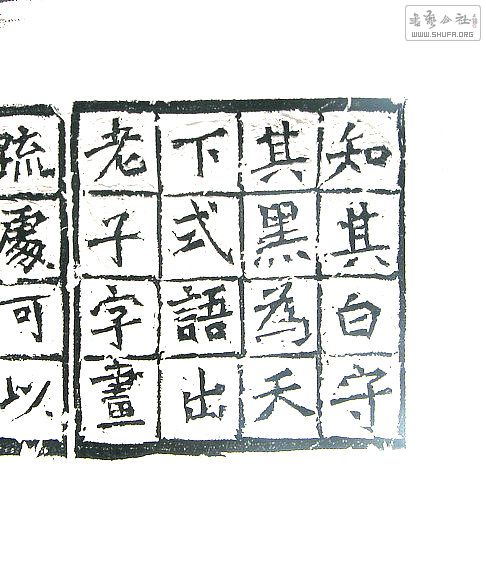 知其白守
其黑為天
下式語出
老子字畫
疏處可以
書藝公社
WWW.SHUFA.ORG